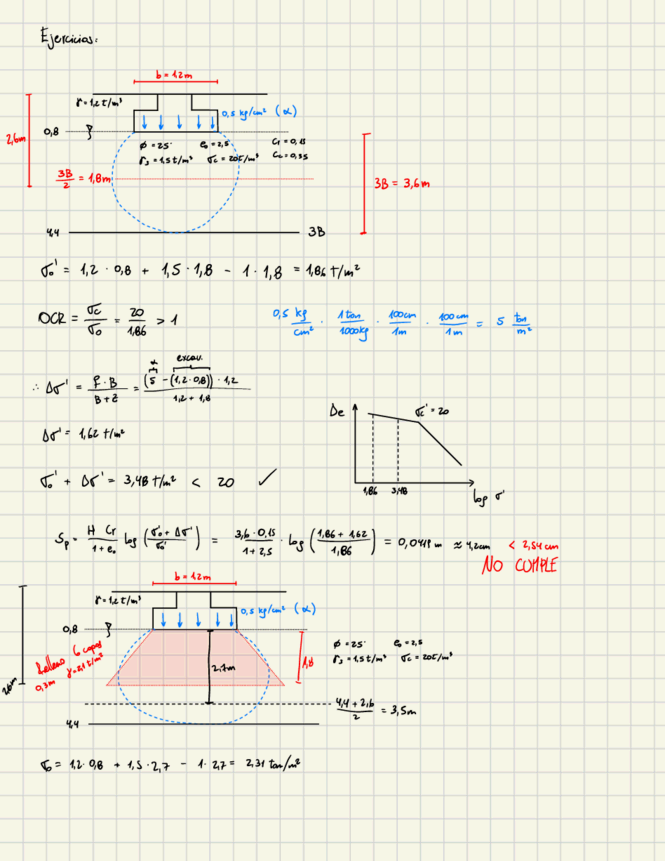 Ejercicios:
b = 1,2m
γ = 1,2 t/m³
0,5 kg/cm² (α)
0,8
2,6m
ϕ = 25° e₀ = 2,5 Cr = 0,15
γs = 1,5 t/m³ σc = 20t/m² Cc = 0,35
3B/2 = 1,8m
3B = 3,6m
4,4
3B
σ₀' = 1,2 · 0,8 + 1,5 · 1,8 - 1 · 1,8 = 1,86 t/m²
OCR = σc/σ₀ = 20/1,86 > 1
0,5 kg/cm² · 1 ton/1000kg · 100cm/1m · 100cm/1m = 5 ton/m²
α excav.
∴ Δσ' = P · B/B + Z = (5 - (1,2 · 0,8)) · 1,2/1,2 + 1,8
Δσ' = 1,62 t/m²
Δe
σc' = 20
1,86 3,48
log σ'
σ₀' + Δσ' = 3,48 t/m² < 20 ✓
Sp = H Cr/1 + e₀ log (σ₀ + Δσ'/σ₀') = 3,6 · 0,15/1 + 2,5 · log (1,86 + 1,62/1,86) = 0,0419 m ≈ 4,2cm < 2,54 cm
NO CUMPLE
b = 1,2m
γ = 1,2 t/m³
0,5 kg/cm² (α)
0,8
Relleno 6 capas
0,3m γ=2,1 t/m³
2,6m
2,7m
1,8
ϕ = 25° e₀ = 2,5
γs = 1,5 t/m³ σc = 20t/m²
4,4 + 2,6/2 = 3,5m
4,4
σ₀ = 1,2 · 0,8 + 1,5 · 2,7 - 1 · 2,7 = 2,31 ton/m²